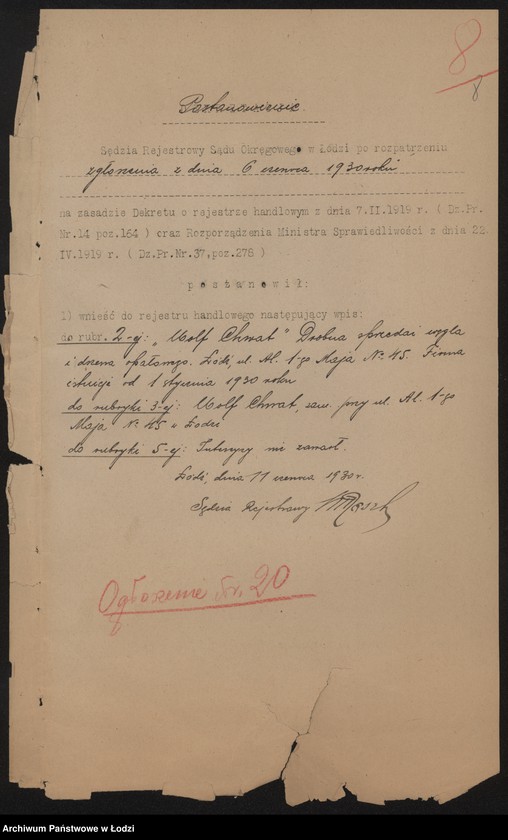 8
8
Postanowienie.
Sędzia Rejestrowy Sądu Okręgowego w Łodzi po rozpatrzeniu
zgłoszenia z dnia 6 czerwca 1930 roku
na zasadzie Dekretu o rejestrze handlowym z dnia 7.II.1919 r. ( Dz.Pr.
Nr.14 poz.164 ) oraz Rozporządzenia Ministra Sprawiedliwości z dnia 22
IV.1919 r. ( Dz.Pr.Nr.37,poz.278 )
p o s t a n o w i ł :
1) wnieść do rejestru handlowego następujący wpis:
do rubr. 2-ej: „Wolf Chwat" Drobna sprzedaż węgla
i drzewa opałowego. Łódź, ul. Al. 1-go Maja № 45. Firma
istnieje od 1 stycznia 1930 roku
do rubryki 3-ej: Wolf Chwat, zam. przy ul. Al. 1-go
Maja № 45 w Łodzi
do rubryki 5-ej: Intercyzy nie zawarł.
Łódź, dnia 11 czerwca 1930 r.
Sędzia Rejestrowy
Ogłoszenie Nr. 20
Archiwum Państwowe w Łodzi